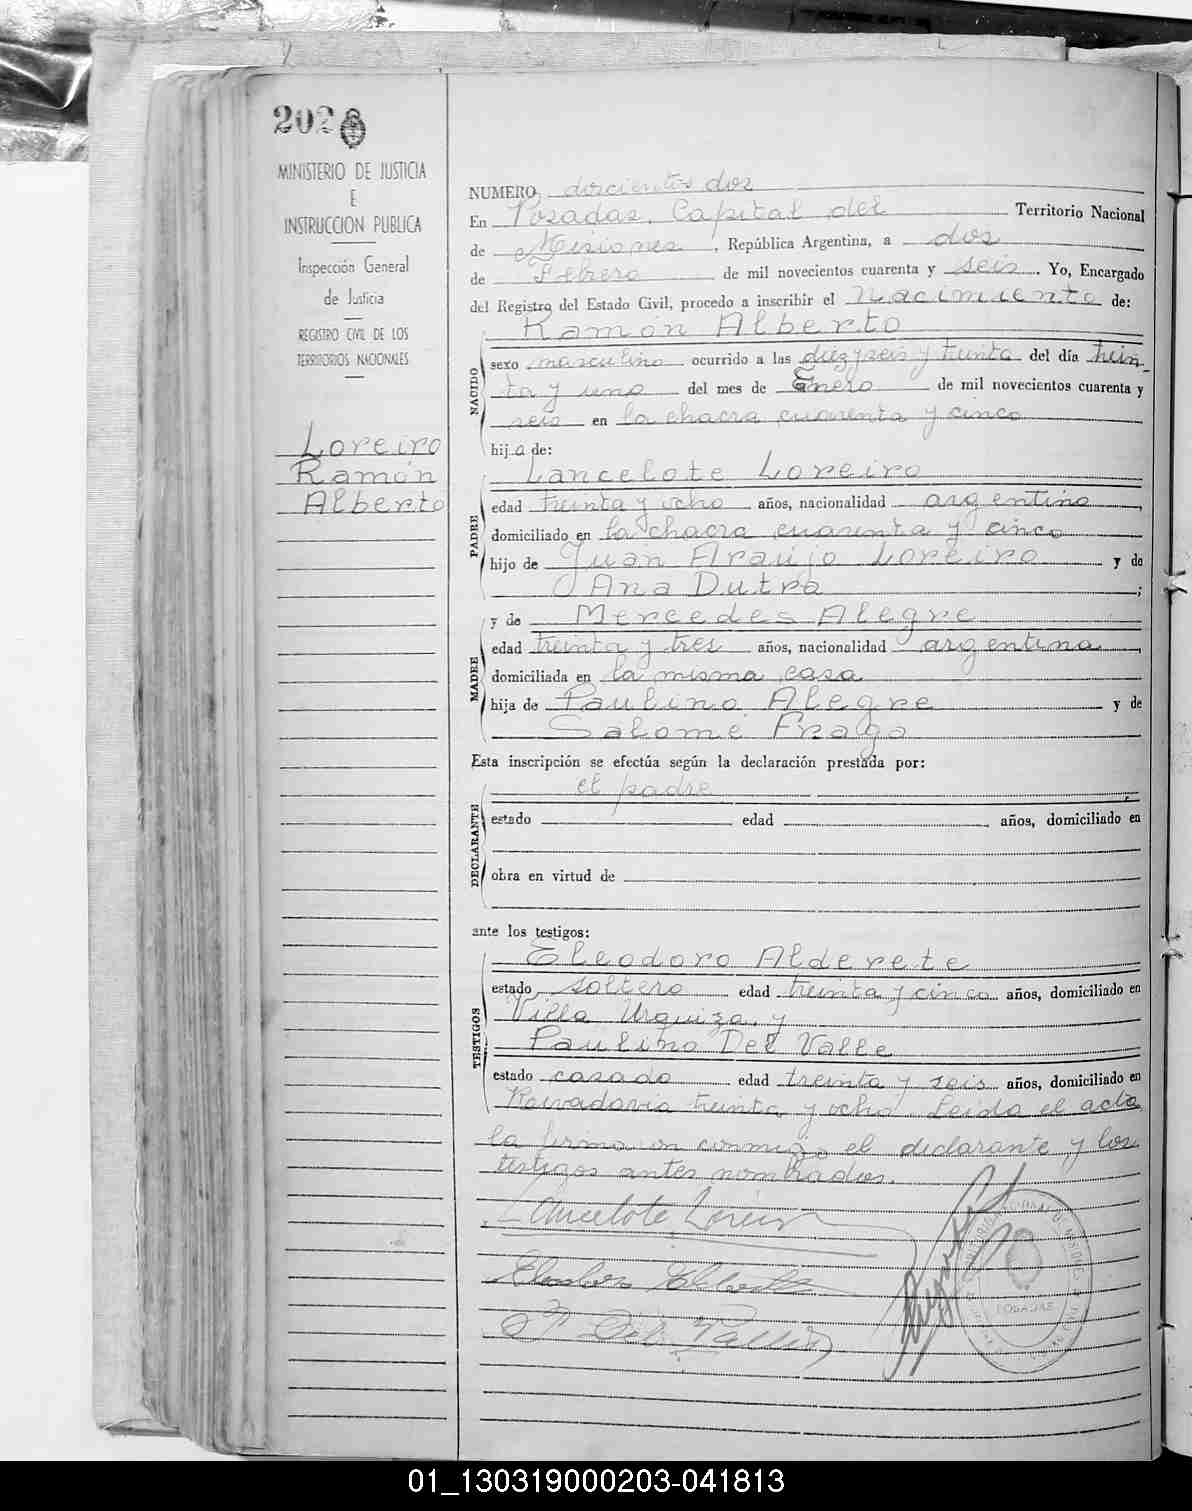 202
MINISTERIO DE JUSTICIA
E
INSTRUCCION PUBLICA
Inspección General
de Justicia
REGISTRO CIVIL DE LOS
TERRITORIOS NACIONALES
Loreiro
Ramón
Alberto
NUMERO doscientos dos
En Posadas, Capital del Territorio Nacional
de Misiones, República Argentina, a dos
de Febrero de mil novecientos cuarenta y seis. Yo, Encargado
del Registro del Estado Civil, procedo a inscribir el Nacimiento de:
Ramón Alberto
NACIDO
sexo masculino ocurrido a las diez y seis y treinta del día trein-
ta y uno del mes de Enero de mil novecientos cuarenta y
seis en la chacra cuarenta y cinco
hijo de:
Lancelote Loreiro
PADRE
edad treinta y ocho años, nacionalidad argentino,
domiciliado en la chacra cuarenta y cinco
hijo de Juan Araujo Loreiro y de
Ana Dutra;
y de Mercedes Alegre
MADRE
edad treinta y tres años, nacionalidad argentina,
domiciliada en la misma casa
hija de Paulino Alegre y de
Salomé Fraga
Esta inscripción se efectúa según la declaración prestada por:
el padre
DECLARANTE
estado edad años, domiciliado en
obra en virtud de
ante los testigos:
Eleodoro Alderete
TESTIGOS
estado soltero edad treinta y cinco años, domiciliado en
Villa Urquiza, y
Paulino Del Valle
estado casado edad treinta y seis años, domiciliado en
Rivadavia treinta y ocho. Leída el acta
la firmaron conmigo el declarante y los
testigos antes nombrados.
Lancelote Loreiro
P. Del Valle
POSADAS
01_130319000203-041813